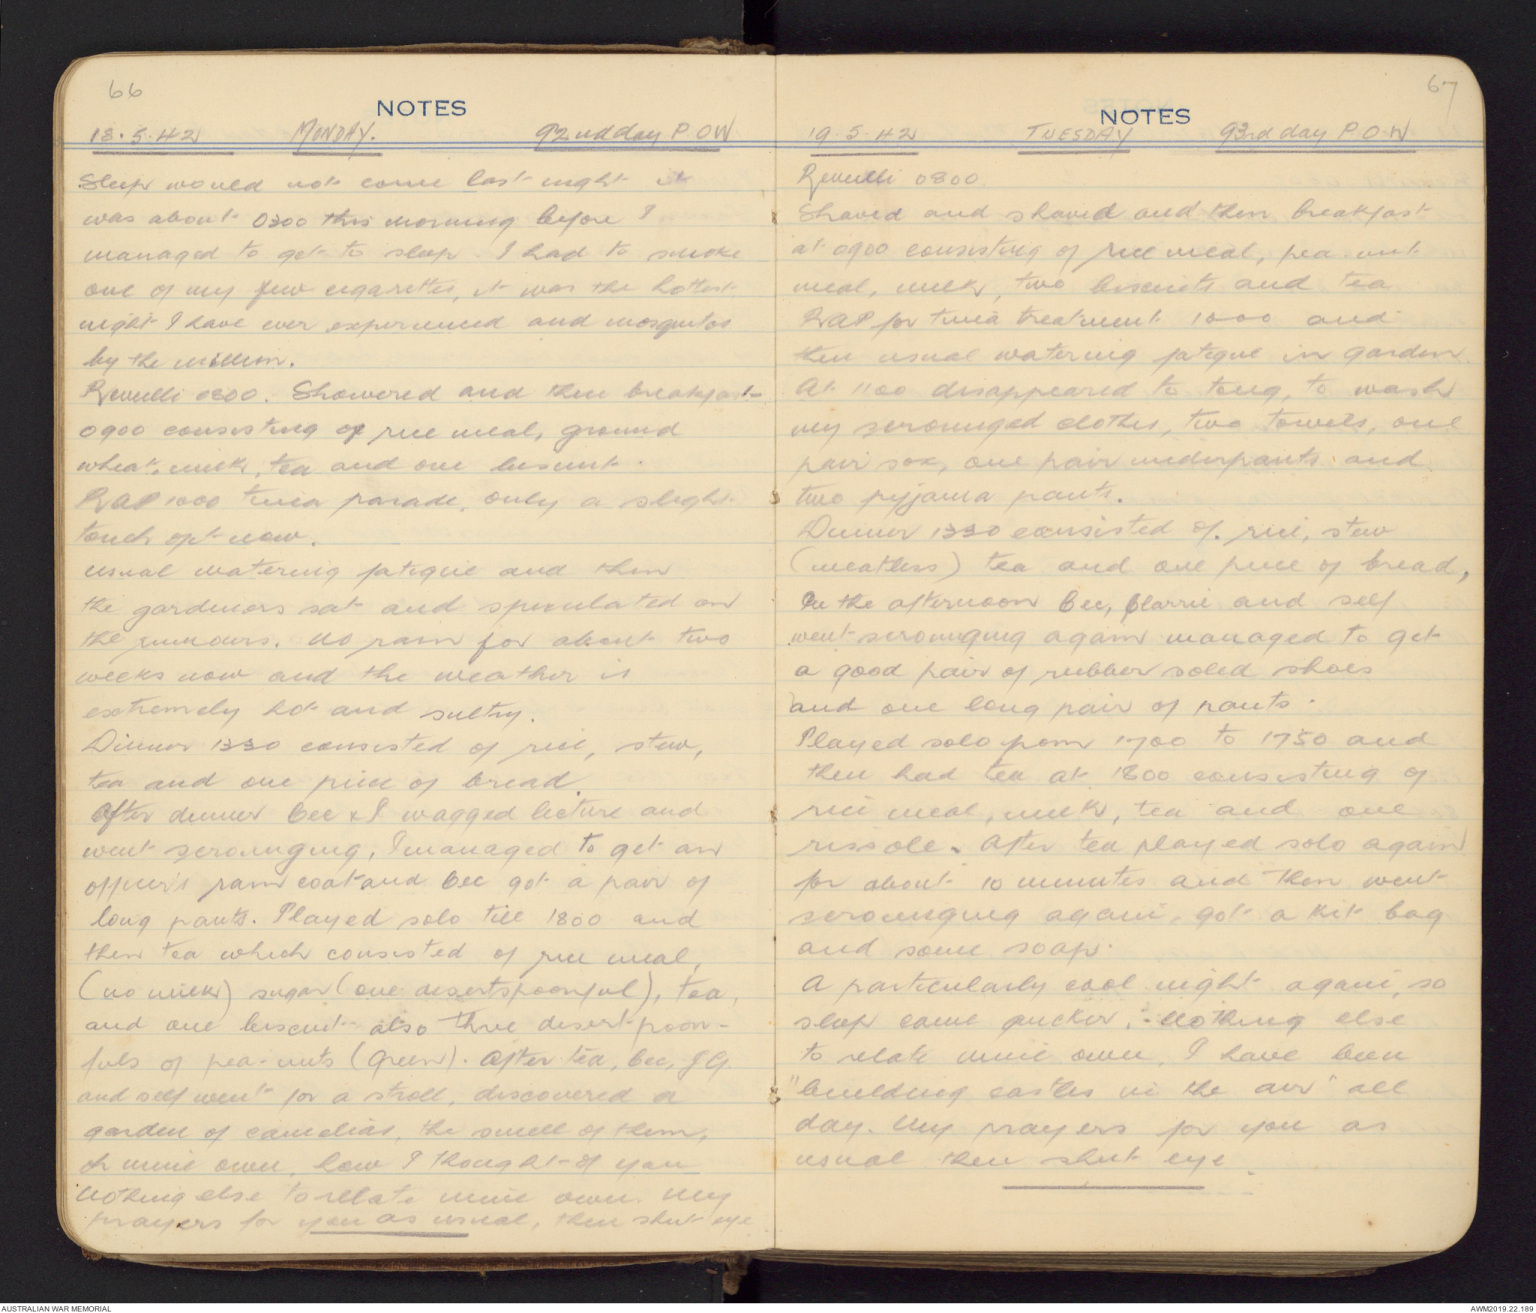 66
NOTES
18.5.42 MONDAY. 92nd day P.O.W
Sleep would not come last night it
was about 0300 this morning before I
managed to get to sleep. I had to smoke
one of my few cigarettes, it was the hottest
night I have ever experienced and mosquitos
by the million.
Revelli 0800. Showered and then breakfast
0900 consisting of rice meal, ground
wheat, milk, tea and one biscuit.
RAP 1000 tinea parade, only a slight
touch of it now.
usual watering fatigue and then
the gardeners sat and speculated on
the rumours. No rain for about two
weeks now and the weather is
extremely hot and sultry.
Dinner 1330 consisted of rice, stew,
tea and one piece of bread.
After dinner Cec & I wagged lecture and
went scrounging, I managed to get an
officer's rain coat and Cec got a pair of
long pants. Played solo till 1800 and
then tea which consisted of rice meal,
(no milk) sugar (one desertspoonful), tea,
and one biscuit also three desert-poon-
fuls of pea-nuts (Green). After tea, Cec, J.G.
and self went for a stroll, discovered a
garden of camelias, the smell of them,
oh mine own, how I thought of you
Nothing else to relate mine own. My
prayers for you as usual, then shut eye
67
NOTES
19.5.42 TUESDAY 93rd day P.O.W
Revelli 0800.
Shaved and shaved and then breakfast
at 0900 consisting of rice meal, pea nut
meal, milk, two biscuits and tea
RAP for tinea treatment 1000 and
then usual watering fatigue in garden.
At 1100 disappeared to tong, to wash
my scrounged clothes, two towels, one
pair sox, one pair underpants and
two pyjama pants.
Dinner 1330 consisted of. rice, stew
(meatless) tea and one piece of bread,
In the afternoon Cec, Clarrie and self
went scrounging again managed to get
a good pair of rubber soled shoes
and one long pair of pants.
Played solo from 1700 to 1750 and
then had tea at 1800 consisting of
rice meal, milk, tea and one
rissole. After tea played solo again
for about 10 minutes and then went
scrounging again, got a kit bag
and some soap.
A particularly cool night again, so
sleep came quicker. Nothing else
to relate mine own, I have been
"building castles in the air" all
day. My prayers for you as
usual then shut eye.
AUSTRALIAN WAR MEMORIAL
AWM2019.22.189